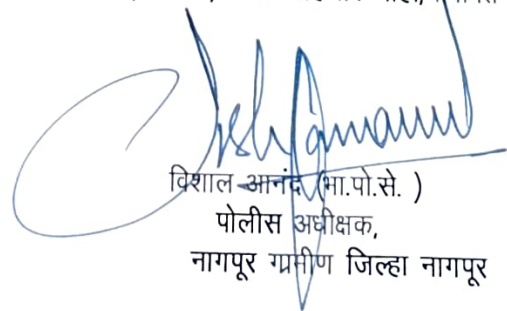 विशाल आनंद (भा.पो.से. )
पोलीस अधीक्षक,
नागपूर ग्रामीण जिल्हा नागपूर